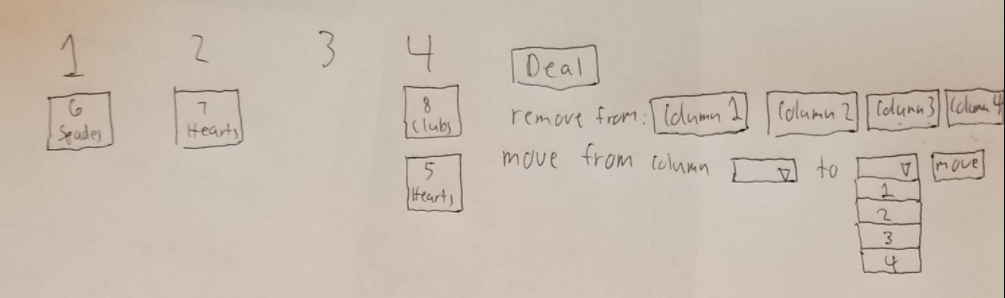 1 2 3 4
Deal
6 Spades
7 Hearts
8 Clubs
5 Hearts
remove from: Column 1 Column 2 Column 3 Column 4
move from column to move
1
2
3
4